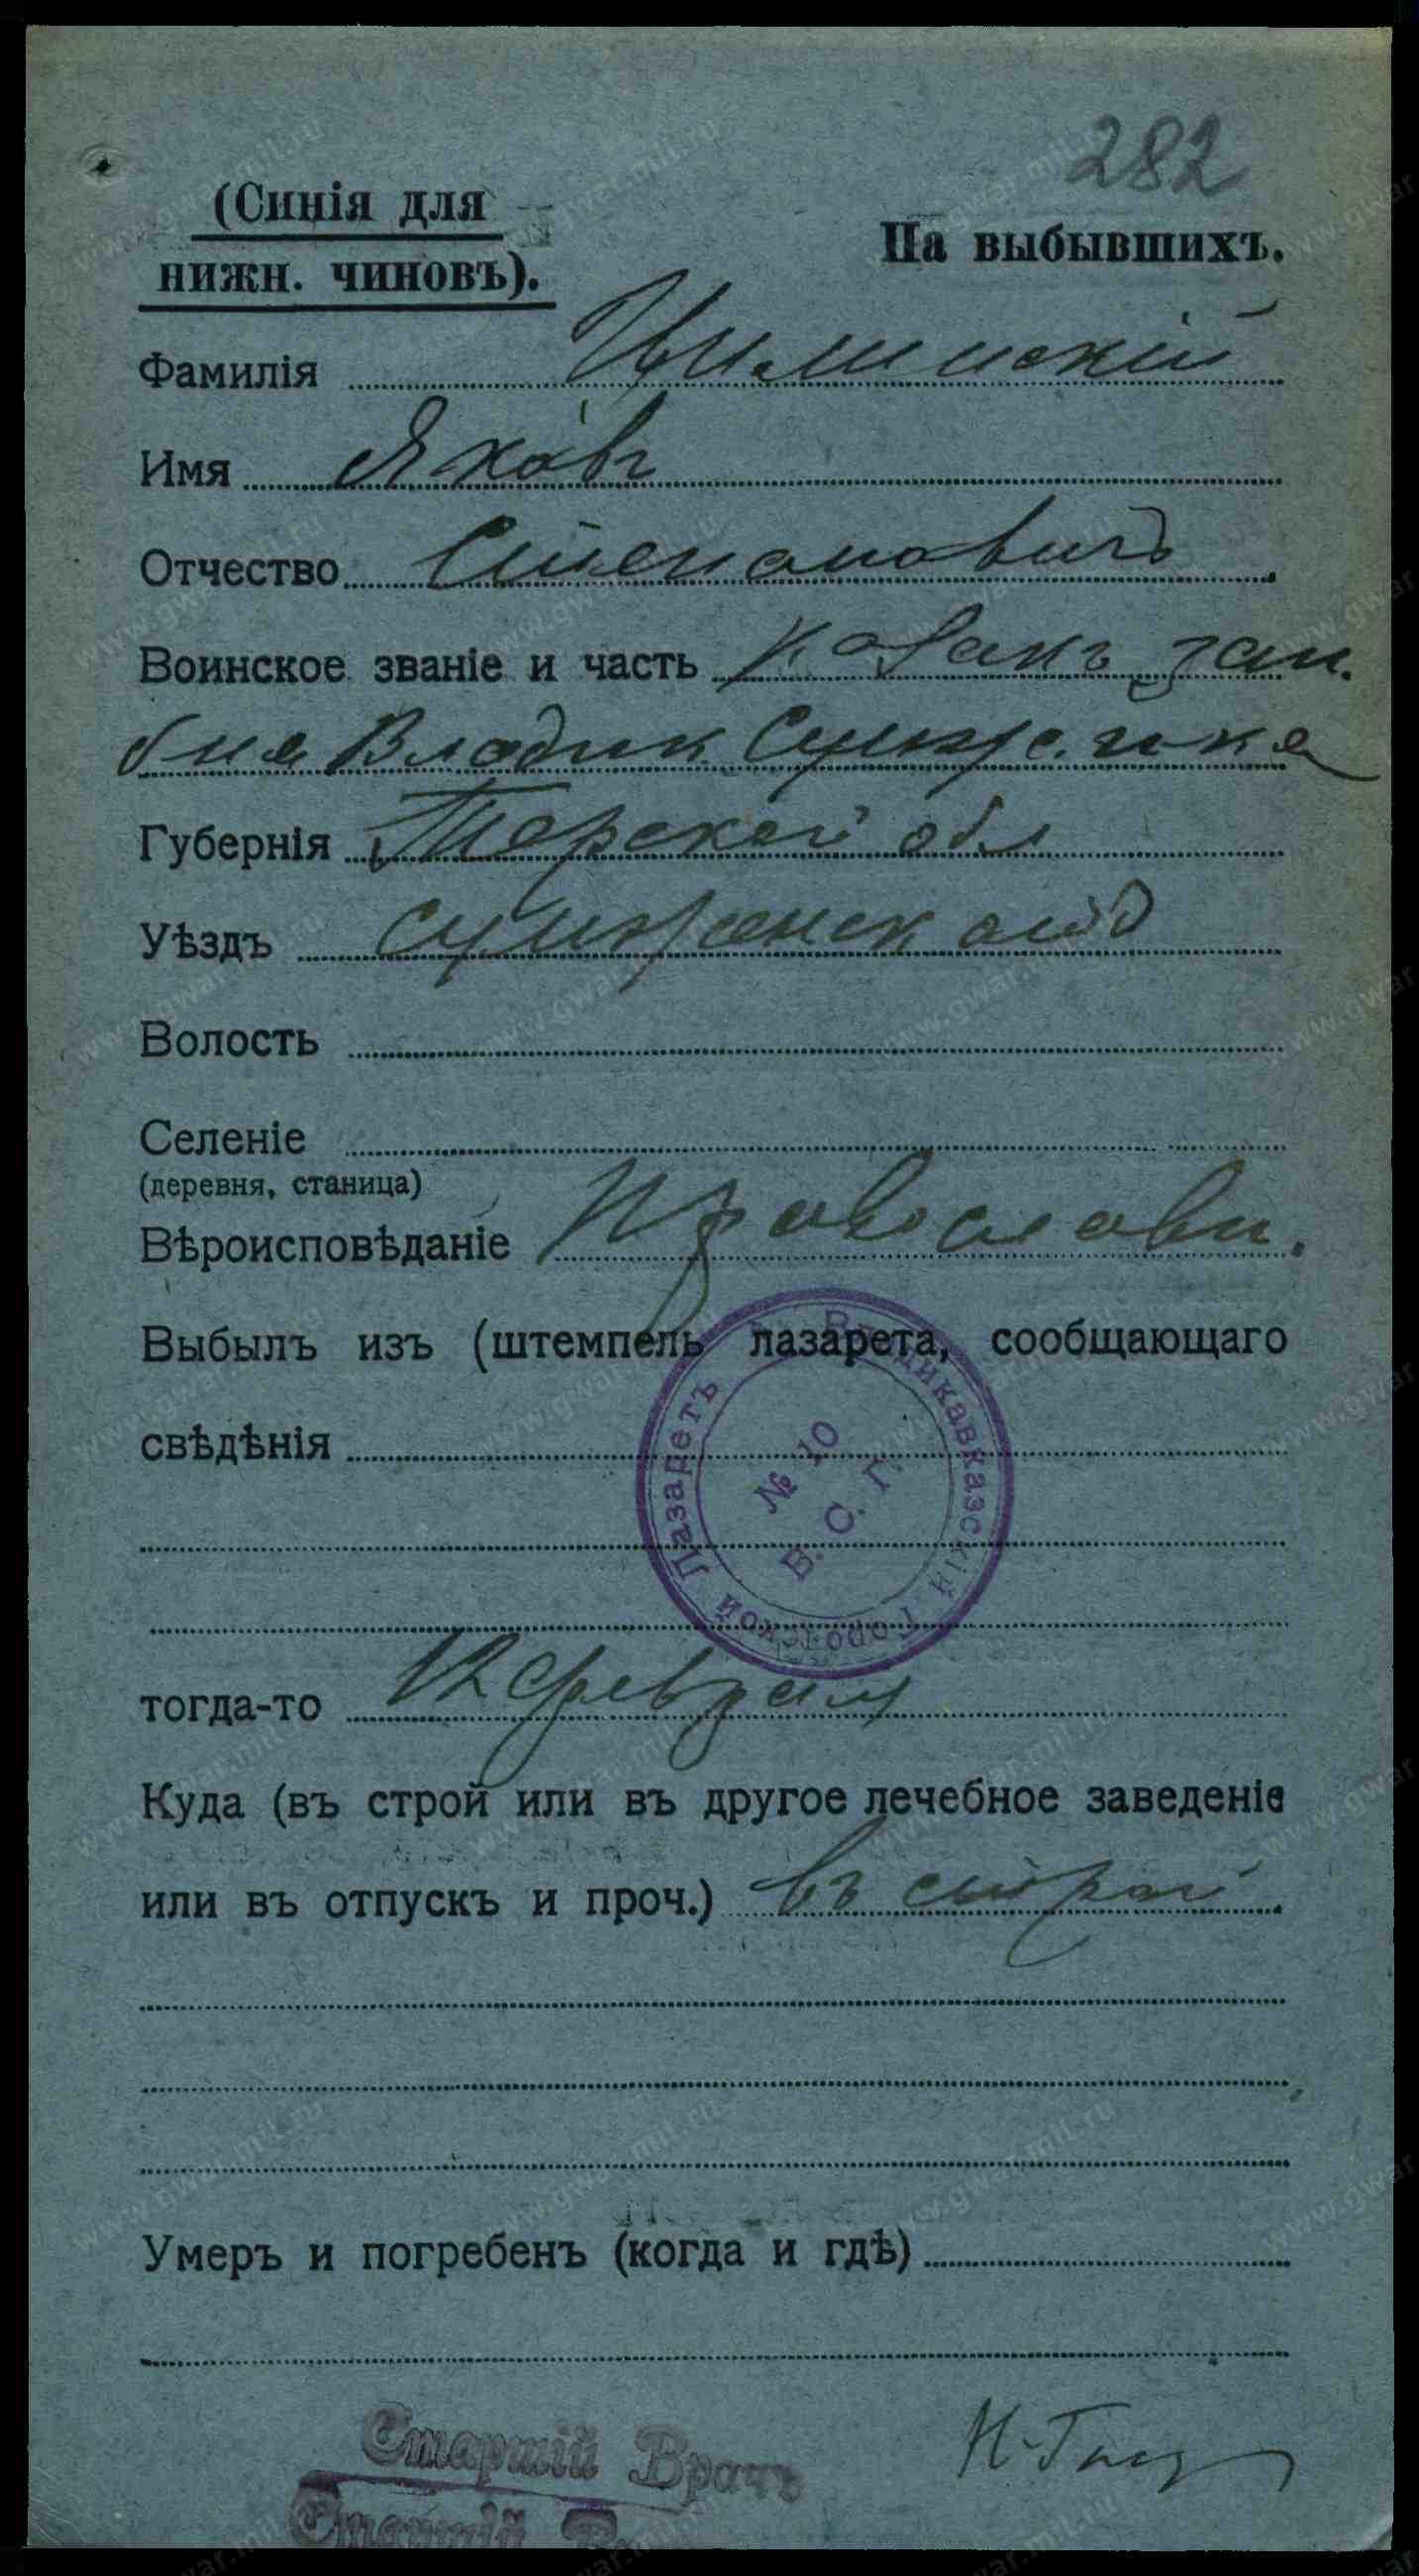 282
(Синія для
нижн. чиновъ).
На выбывшихъ.
Фамилія
Имя Яковъ
Отчество Степановичъ
Воинское званіе и часть Козакъ
Владик Сунж.
Губернія Терской обл
Уѣздъ Сунженск отд
Волость
Селеніе
(деревня, станица)
Вѣроисповѣданіе Православн.
Выбылъ изъ (штемпель лазарета, сообщающаго
свѣдѣнія
Владикавказскій Городской Лазаретъ
№ 10
В. С. Г.
тогда-то 12 февраля
Куда (въ строй или въ другое лечебное заведеніе
или въ отпускъ и проч.) въ строй
Умеръ и погребенъ (когда и гдѣ)
Старшій Врачъ
Старшій
www.gwar.mil.ru